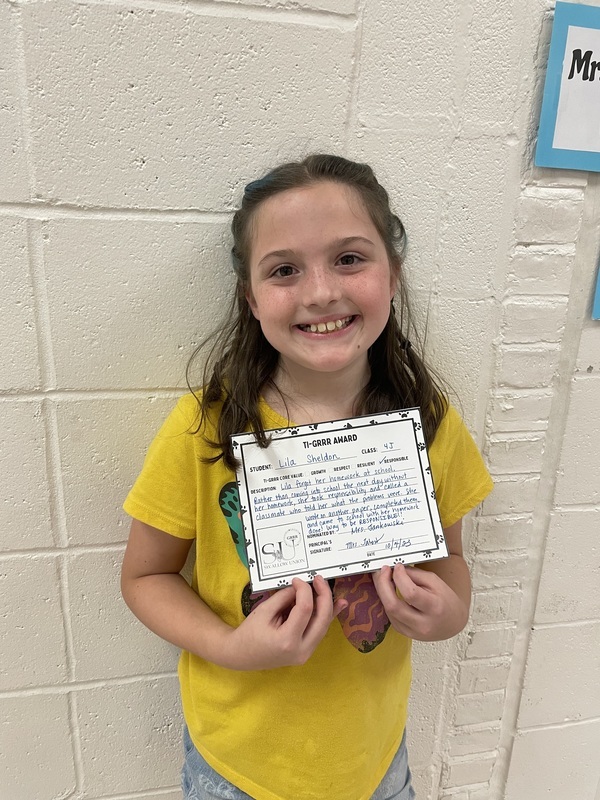 Mr
TI-GRRR AWARD
STUDENT: Lila Sheldon CLASS: 4J
TI-GRRR CORE VALUE GROWTH RESPECT RESILIENT ✓RESPONSIBLE
DESCRIPTION: Lila forgot her homework at school.
Rather than coming into school the next day without
her homework, she took responsibility and called a
classmate who told her what the problems were. She
wrote on another paper, completed them,
and came to school with her homework
done! Way to be RESPONSIBLE!!
NOMINATED BY Mrs. Jankowski
PRINCIPAL'S
SIGNATURE:
10/5/23
DATE
GRRR
SU
SWALLOW UNION